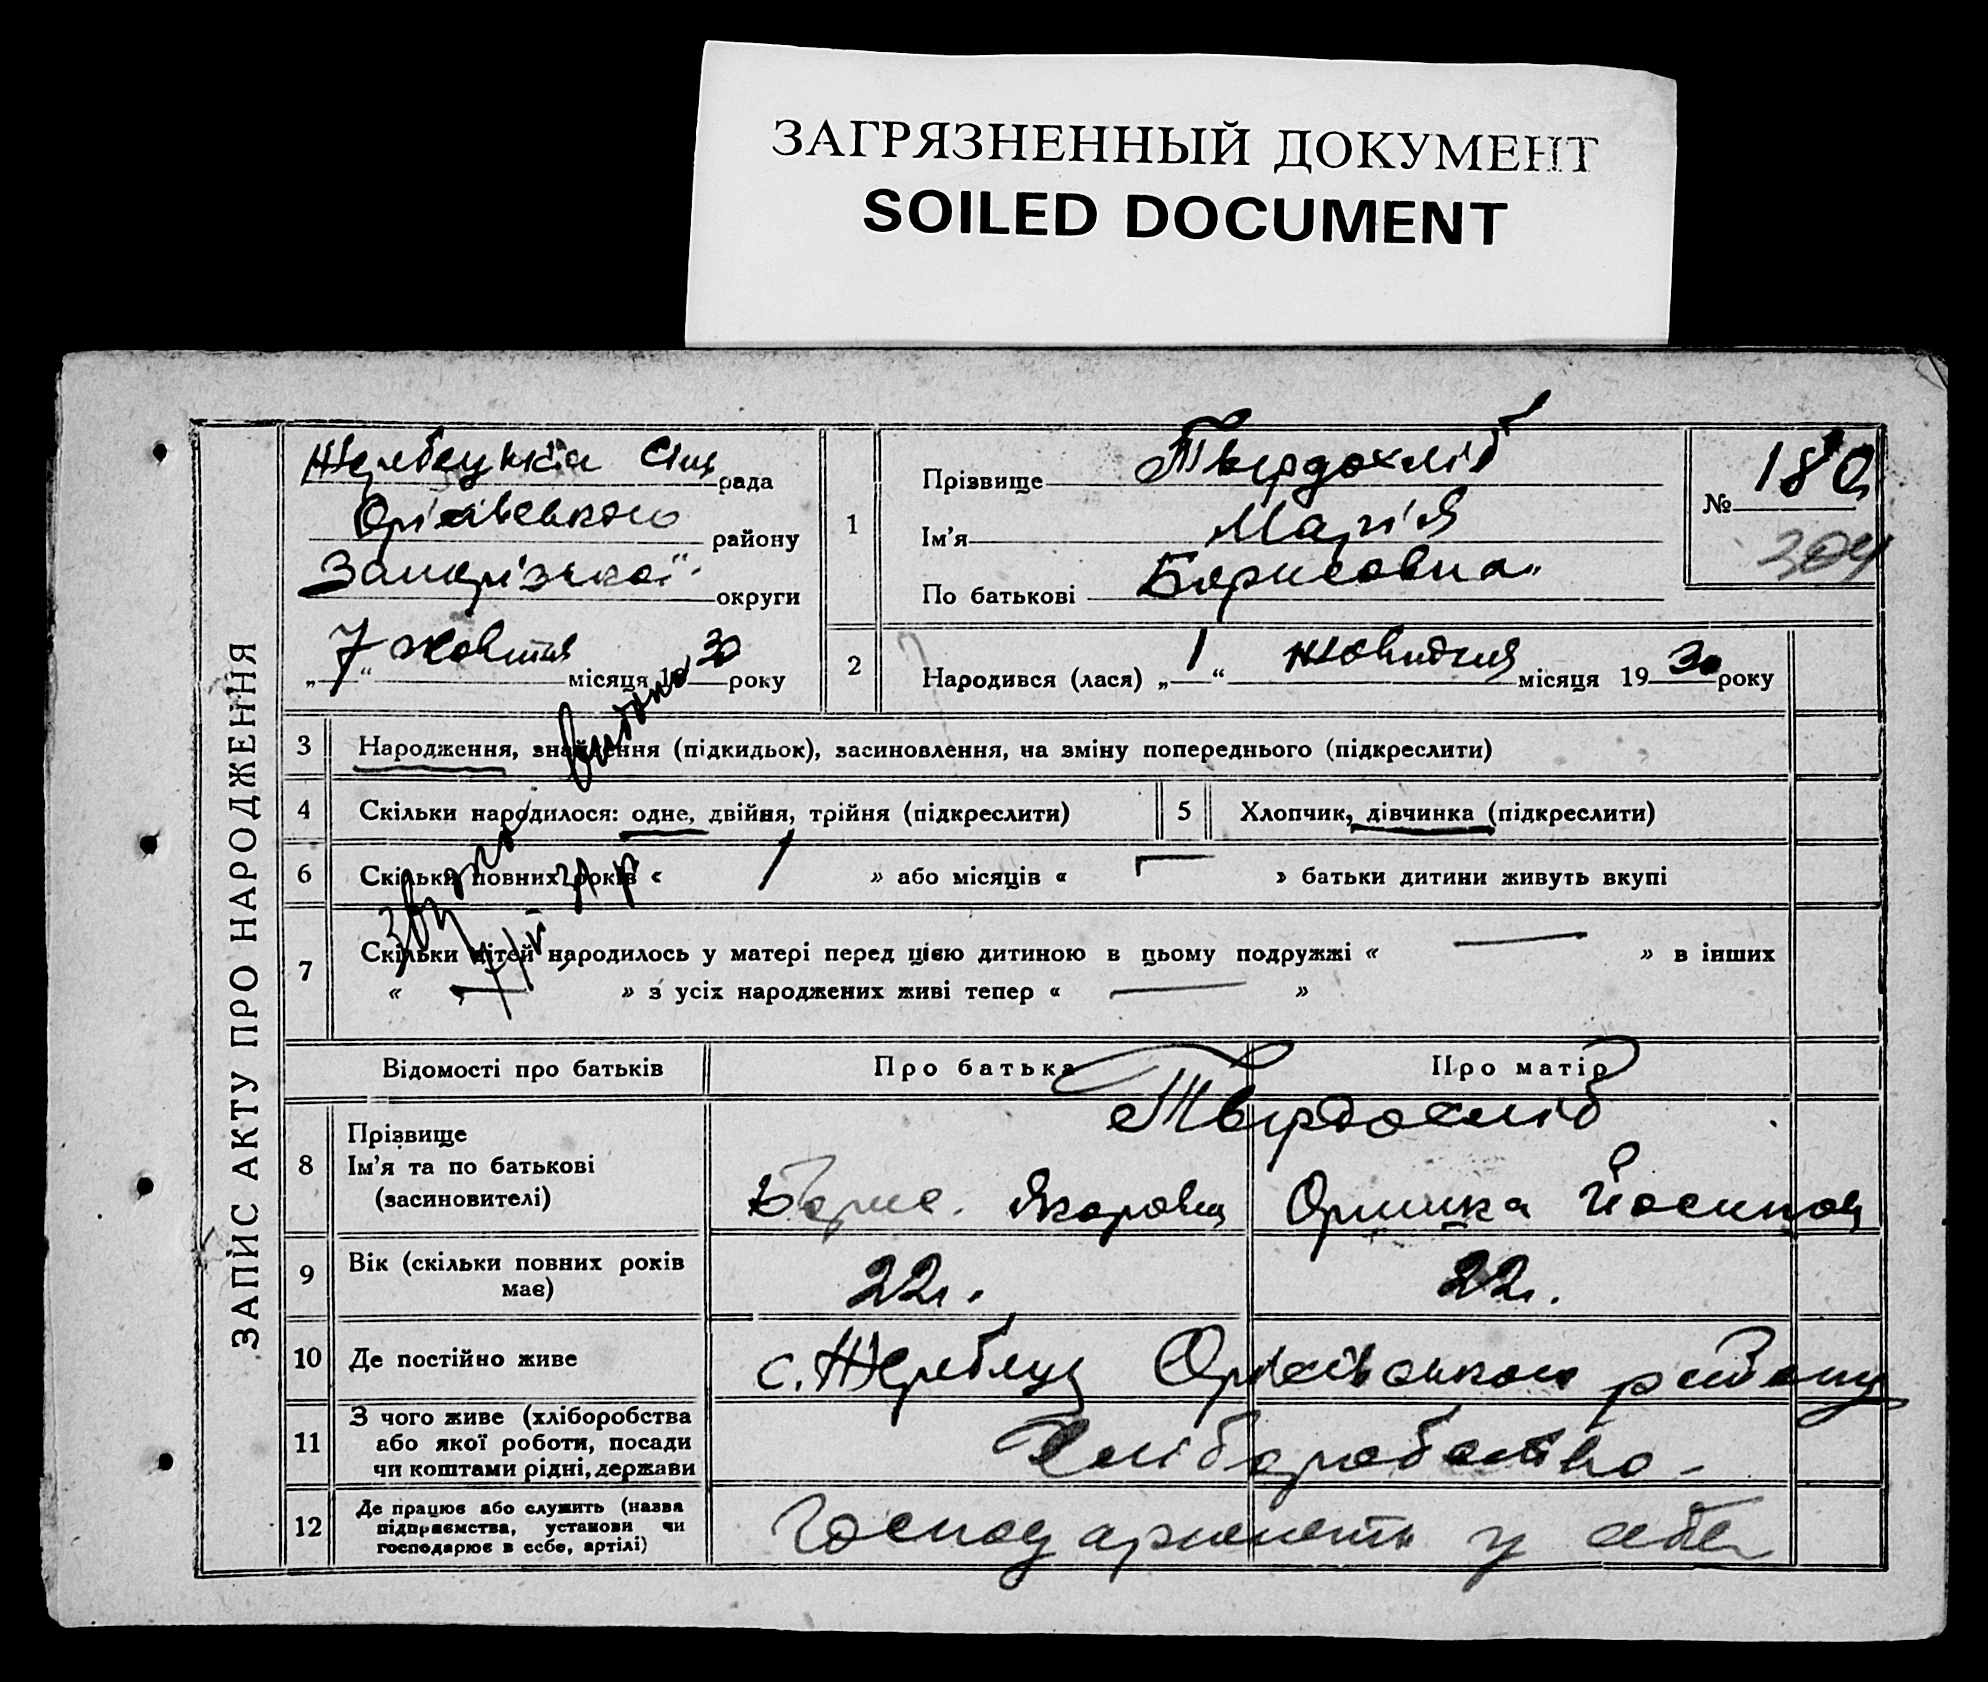 ЗАГРЯЗНЕННЫЙ ДОКУМЕНТ
SOILED DOCUMENT
ЗАПИС АКТУ ПРО НАРОДЖЕННЯ
Жеребецька Сіль рада
Оріхівського району
Запорізької округи
„7“ жовтня місяця 1930 року
1
Прізвище Твердохліб
Ім'я Марія
По батькові Борисовна
№ 180
304
2
Народився (лася) „1“ жовтня місяця 1930 року
3
Народження, знайдення (підкидьок), засиновлення, на зміну попереднього (підкреслити)
4
Скільки народилося: одне, двійня, трійня (підкреслити)
5
Хлопчик, дівчинка (підкреслити)
6
Скільки повних років « 1 » або місяців « — » батьки дитини живуть вкупі
7
Скільки дітей народилось у матері перед цією дитиною в цьому подружжі « — » в інших
« — » з усіх народжених живі тепер « — »
видано
Відомості про батьків
Про батька
Про матір
8
Прізвище
Ім'я та по батькові
(засиновителі)
Твердохліб
Борис
Оришка Йосипов
9
Вік (скільки повних років
має)
22 р.
22 р.
10
Де постійно живе
с. Жеребець Оріхівського району
11
З чого живе (хліборобства
або якої роботи, посади
чи коштами рідні, держави
Хліборобство
12
Де працює або служить (назва
підприємства, установи чи
господарює в себе, артілі)
Господарюють у себе